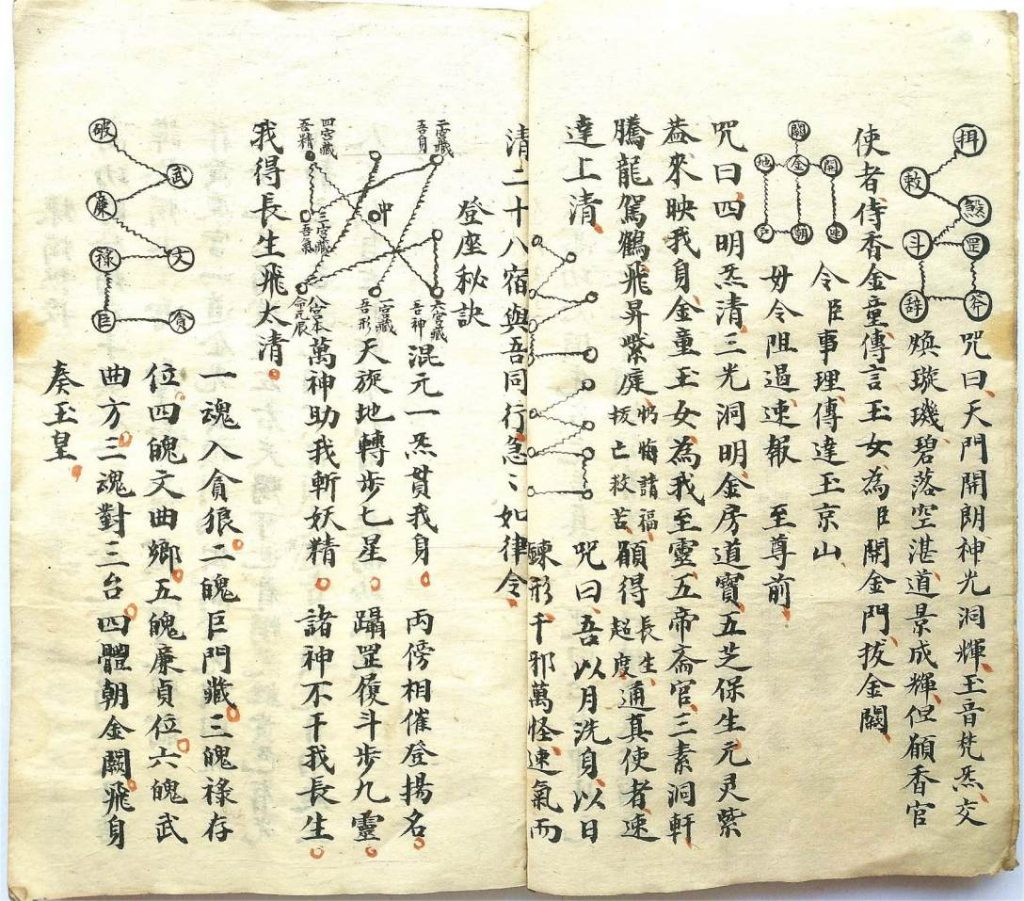 拜
敕
煞
斗
罡
辞
斧
咒曰天門開朗神光洞輝玉音梵炁交
煥璇璣碧落空湛道景成輝但願香官
使者侍香金童傳言玉女為臣開金門拔金闕
關
地 金 開
戶 朝
令臣事理傳達玉京山
毋令阻過速報 至尊前
咒曰四明炁清三光洞明金房道寶五芝保生元灵紫
蓋來映我身金童玉女為我至靈五帝斋官三素洞軒
騰龍駕鶴飛昇紫庭 懺悔諸福 拔亡救苦 願得 長生 超度 通真使者速
達上清
咒曰吾以月洗身以日
鍊形千邪萬怪速氣而
清二十八宿與吾同行急〻如律令
登座秘訣
二宮藏吾身
六宮藏吾神
中
一宮藏吾形
四宮藏吾精
三宮藏吾氣
八宮本命元辰
混元一炁貫我身 兩傍相催登揚名
天旋地轉步七星 躡罡履斗步九靈
萬神助我斬妖精 諸神不干我長生
我得長生飛太清
破
武
廉
文
祿
巨
貪
一魂入貪狼二魄巨門藏三魄祿存
位四魄文曲鄉五魄廉貞位六魄武
曲方三魂對三台四體朝金闕飛身
奏玉皇